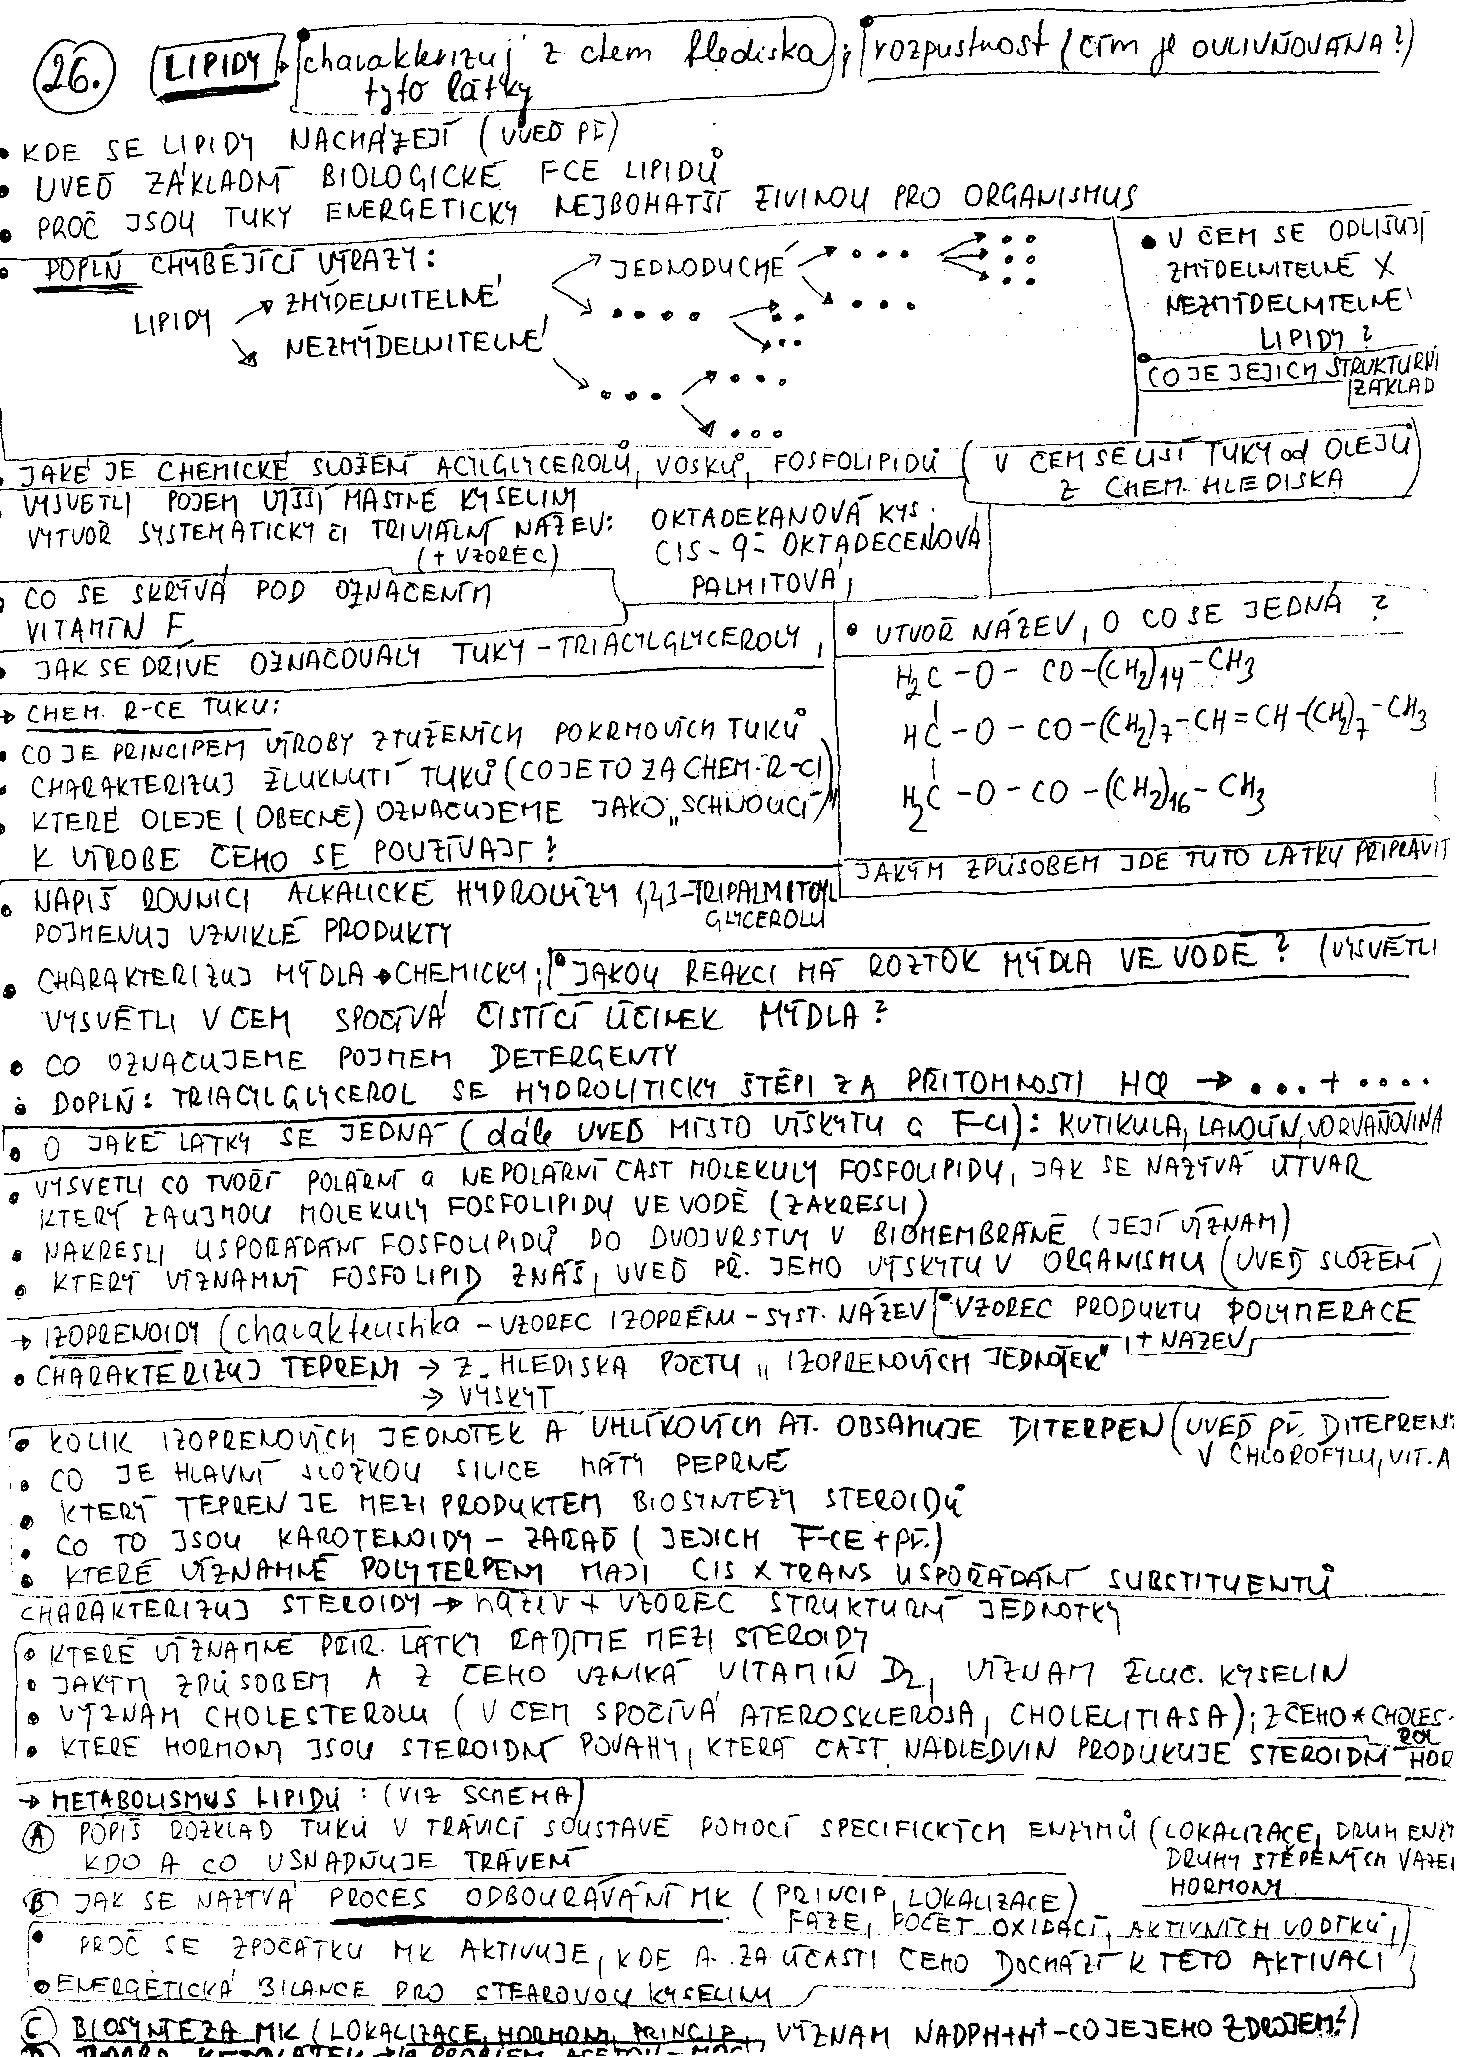 26. LIPIDY → charakterizuj z chem hlediska ; rozpustnost (čím je OVLIVŇOVÁNA?)
tyto látky
• KDE SE LIPIDY NACHÁZEJÍ (UVEĎ PŘ)
• UVEĎ ZÁKLADNÍ BIOLOGICKÉ FCE LIPIDŮ
• PROČ JSOU TUKY ENERGETICKY NEJBOHATŠÍ ŽIVINOU PRO ORGANISMUS
• DOPLŇ CHYBĚJÍCÍ VÝRAZY:
LIPIDY → ZMÝDELNITELNÉ → JEDNODUCHÉ → ... → ...
→ NEZMÝDELNITELNÉ
• V ČEM SE ODLIŠUJÍ
ZMÝDELNITELNÉ X
NEZMÝDELNITELNÉ
LIPIDY?
• CO JE JEJICH STRUKTURNÍ
ZÁKLAD
• JAKÉ JE CHEMICKÉ SLOŽENÍ ACYLGLYCEROLŮ, VOSKŮ, FOSFOLIPIDŮ (V ČEM SE LIŠÍ TUKY od OLEJŮ
Z CHEM. HLEDISKA
VYSVĚTLI POJEM VYŠŠÍ MASTNÉ KYSELINY
VYTVOŘ SYSTEMATICKÝ ČI TRIVIÁLNÍ NÁZEV: OKTADEKANOVÁ KYS.
(+ VZOREC) CIS-9-OKTADECENOVÁ
PALMITOVÁ,
CO SE SKRÝVÁ POD OZNAČENÍM
VITAMÍN F
• JAK SE DŘÍVE OZNAČOVALY TUKY - TRIACYLGLYCEROLY,
• UTVOŘ NÁZEV, O CO SE JEDNÁ?
H2C - O - CO - (CH2)14 - CH3
HC - O - CO - (CH2)7 - CH = CH - (CH2)7 - CH3
H2C - O - CO - (CH2)16 - CH3
JAKÝM ZPŮSOBEM JDE TUTO LÁTKU PŘIPRAVIT
→ CHEM. R-CE TUKŮ:
• CO JE PRINCIPEM VÝROBY ZTUŽENÝCH POKRMOVÝCH TUKŮ
• CHARAKTERIZUJ ŽLUKNUTÍ TUKŮ (CO JE TO ZA CHEM. R-CI)
• KTERÉ OLEJE (OBECNĚ) OZNAČUJEME JAKO „SCHNOUCÍ"
K VÝROBĚ ČEHO SE POUŽÍVAJÍ?
• NAPIŠ ROVNICI ALKALICKÉ HYDROLÝZY 1,2,3-TRIPALMITOYL
GLYCEROLU
POJMENUJ VZNIKLÉ PRODUKTY
• CHARAKTERIZUJ MÝDLA → CHEMICKY; • JAKOU REAKCI MÁ ROZTOK MÝDLA VE VODĚ? (VYSVĚTLI
VYSVĚTLI V ČEM SPOČÍVÁ ČISTÍCÍ ÚČINEK MÝDLA?
• CO OZNAČUJEME POJMEM DETERGENTY
• DOPLŇ: TRIACYLGLYCEROL SE HYDROLITICKY ŠTĚPÍ ZA PŘÍTOMNOSTI HCl → ... + ....
• O JAKÉ LÁTKY SE JEDNÁ (dále UVEĎ MÍSTO VÝSKYTU a F-CI): KUTIKULA, LANOLÍN, VORVAŇOVINA
• VYSVĚTLI CO TVOŘÍ POLÁRNÍ a NEPOLÁRNÍ ČÁST MOLEKULY FOSFOLIPIDU, JAK SE NAZÝVÁ ÚTVAR
KTERÝ ZAUJMOU MOLEKULY FOSFOLIPIDU VE VODĚ (ZAKRESLI)
• NAKRESLI USPOŘÁDÁNÍ FOSFOLIPIDŮ DO DVOJVRSTVY V BIOMEMBRÁNĚ (JEJÍ VÝZNAM)
• KTERÝ VÝZNAMNÝ FOSFOLIPID ZNÁŠ, UVEĎ PŘ. JEHO VÝSKYTU V ORGANISMU (UVEĎ SLOŽENÍ)
→ IZOPRENOIDY (charakteristika - VZOREC IZOPRENU - SYST. NÁZEV • VZOREC PRODUKTU POLYMERACE
+ NÁZEV)
• CHARAKTERIZUJ TEPRENY → Z HLEDISKA POČTU „IZOPRENOVÝCH JEDNOTEK"
→ VÝSKYT
• KOLIK IZOPRENOVÝCH JEDNOTEK A UHLÍKOVÝCH AT. OBSAHUJE DITERPEN (UVEĎ PŘ. DITEPRENŮ
V CHLOROFYLU, VIT. A
• CO JE HLAVNÍ SLOŽKOU SILICE MÁTY PEPRNÉ
• KTERÝ TEPREN JE MEZI PRODUKTEM BIOSYNTÉZY STEROIDŮ
• CO TO JSOU KAROTENOIDY - ZAŘAĎ (JEJICH F-CE + PŘ.)
• KTERÉ VÝZNAMNÉ POLYTERPENY MAJÍ CIS X TRANS USPOŘÁDÁNÍ SUBSTITUENTŮ
CHARAKTERIZUJ STEROIDY → název + VZOREC STRUKTURNÍ JEDNOTKY
• KTERÉ VÝZNAMNÉ PŘÍR. LÁTKY ŘADÍME MEZI STEROIDY
• JAKÝM ZPŮSOBEM A Z ČEHO VZNIKÁ VITAMÍN D2, VÝZNAM ŽLUČ. KYSELIN
• VÝZNAM CHOLESTEROLU (V ČEM SPOČÍVÁ ATEROSKLEROSA, CHOLELITIASA); Z ČEHO * CHOLES-
ROL
• KTERÉ HORMONY JSOU STEROIDNÍ POVAHY, KTERÁ ČÁST NADLEDVIN PRODUKUJE STEROIDNÍ HOR
→ METABOLISMUS LIPIDŮ: (VIZ SCHEMA)
A POPIŠ ROZKLAD TUKŮ V TRÁVICÍ SOUSTAVĚ POMOCÍ SPECIFICKÝCH ENZYMŮ (LOKALIZACE, DRUH ENZY
KDO A CO USNADŇUJE TRÁVENÍ DRUHY ŠTĚPENÝCH VAZEB
HORMONY
B JAK SE NAZÝVÁ PROCES ODBOURÁVÁNÍ MK (PRINCIP, LOKALIZACE)
FÁZE, POČET OXIDACÍ, AKTIVNÍCH VODÍKŮ,)
• PROČ SE ZPOČÁTKU MK AKTIVUJE, KDE A ZA ÚČASTI ČEHO DOCHÁZÍ K TÉTO AKTIVACI
• ENERGETICKÁ BILANCE PRO STEAROVOU KYSELINU
C BIOSYNTÉZA MK (LOKALIZACE, HORMONY, PRINCIP, VÝZNAM NADPH+H+ - CO JE JEHO ZDROJEM?)